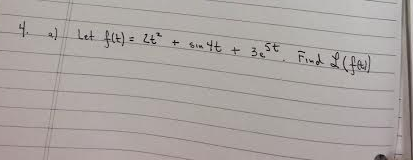 4. a) Let f(t) = 2t² + sin 4t + 3e^{5t}. Find ℒ(f(t))